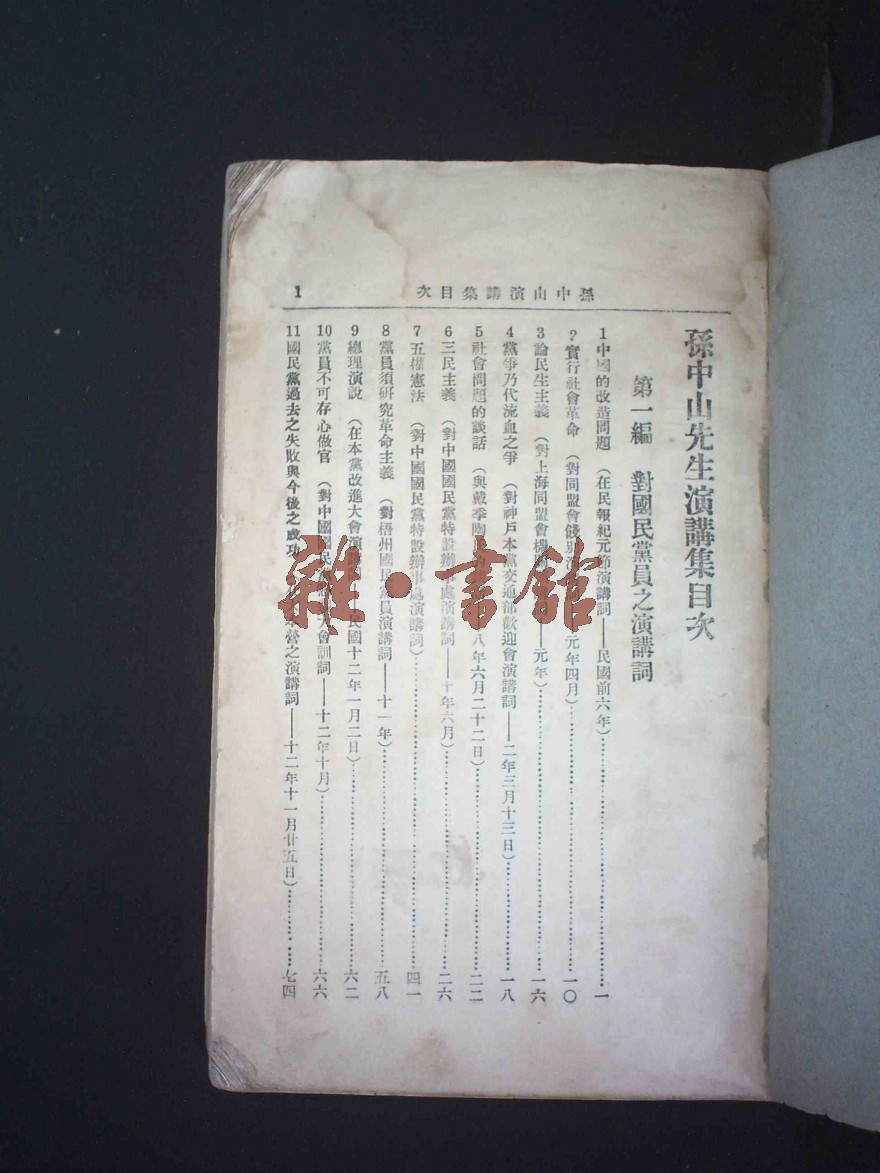 孫中山演講集目次
1
孫中山先生演講集目次
第一編　對國民黨員之演講詞
1 中國的改造問題（在民報紀元節演講詞——民國前六年）……一
2 實行社會革命（對同盟會餞別演 元年四月）……一〇
3 論民生主義（對上海同盟會機 ——元年）……一六
4 黨爭乃代流血之爭（對神戶本黨交通部歡迎會演講詞——二年三月十三日）……一八
5 社會問題的談話（與戴季陶 八年六月二十二日）……二二
6 三民主義（對中國國民黨特設辦事處演講詞——十年六月）……二六
7 五權憲法（對中國國民黨特設辦事處演講詞）……四一
8 黨員須研究革命主義（對梧州國民黨員演講詞——十一年）……五八
9 總理演說（在本黨改進大會演 民國十二年一月二日）……六二
10 黨員不可存心做官（對中國國民黨 大會訓詞——十二年十月）……六六
11 國民黨過去之失敗與今後之成功 營之演講詞——十二年十一月廿五日）……七四
雜·書館